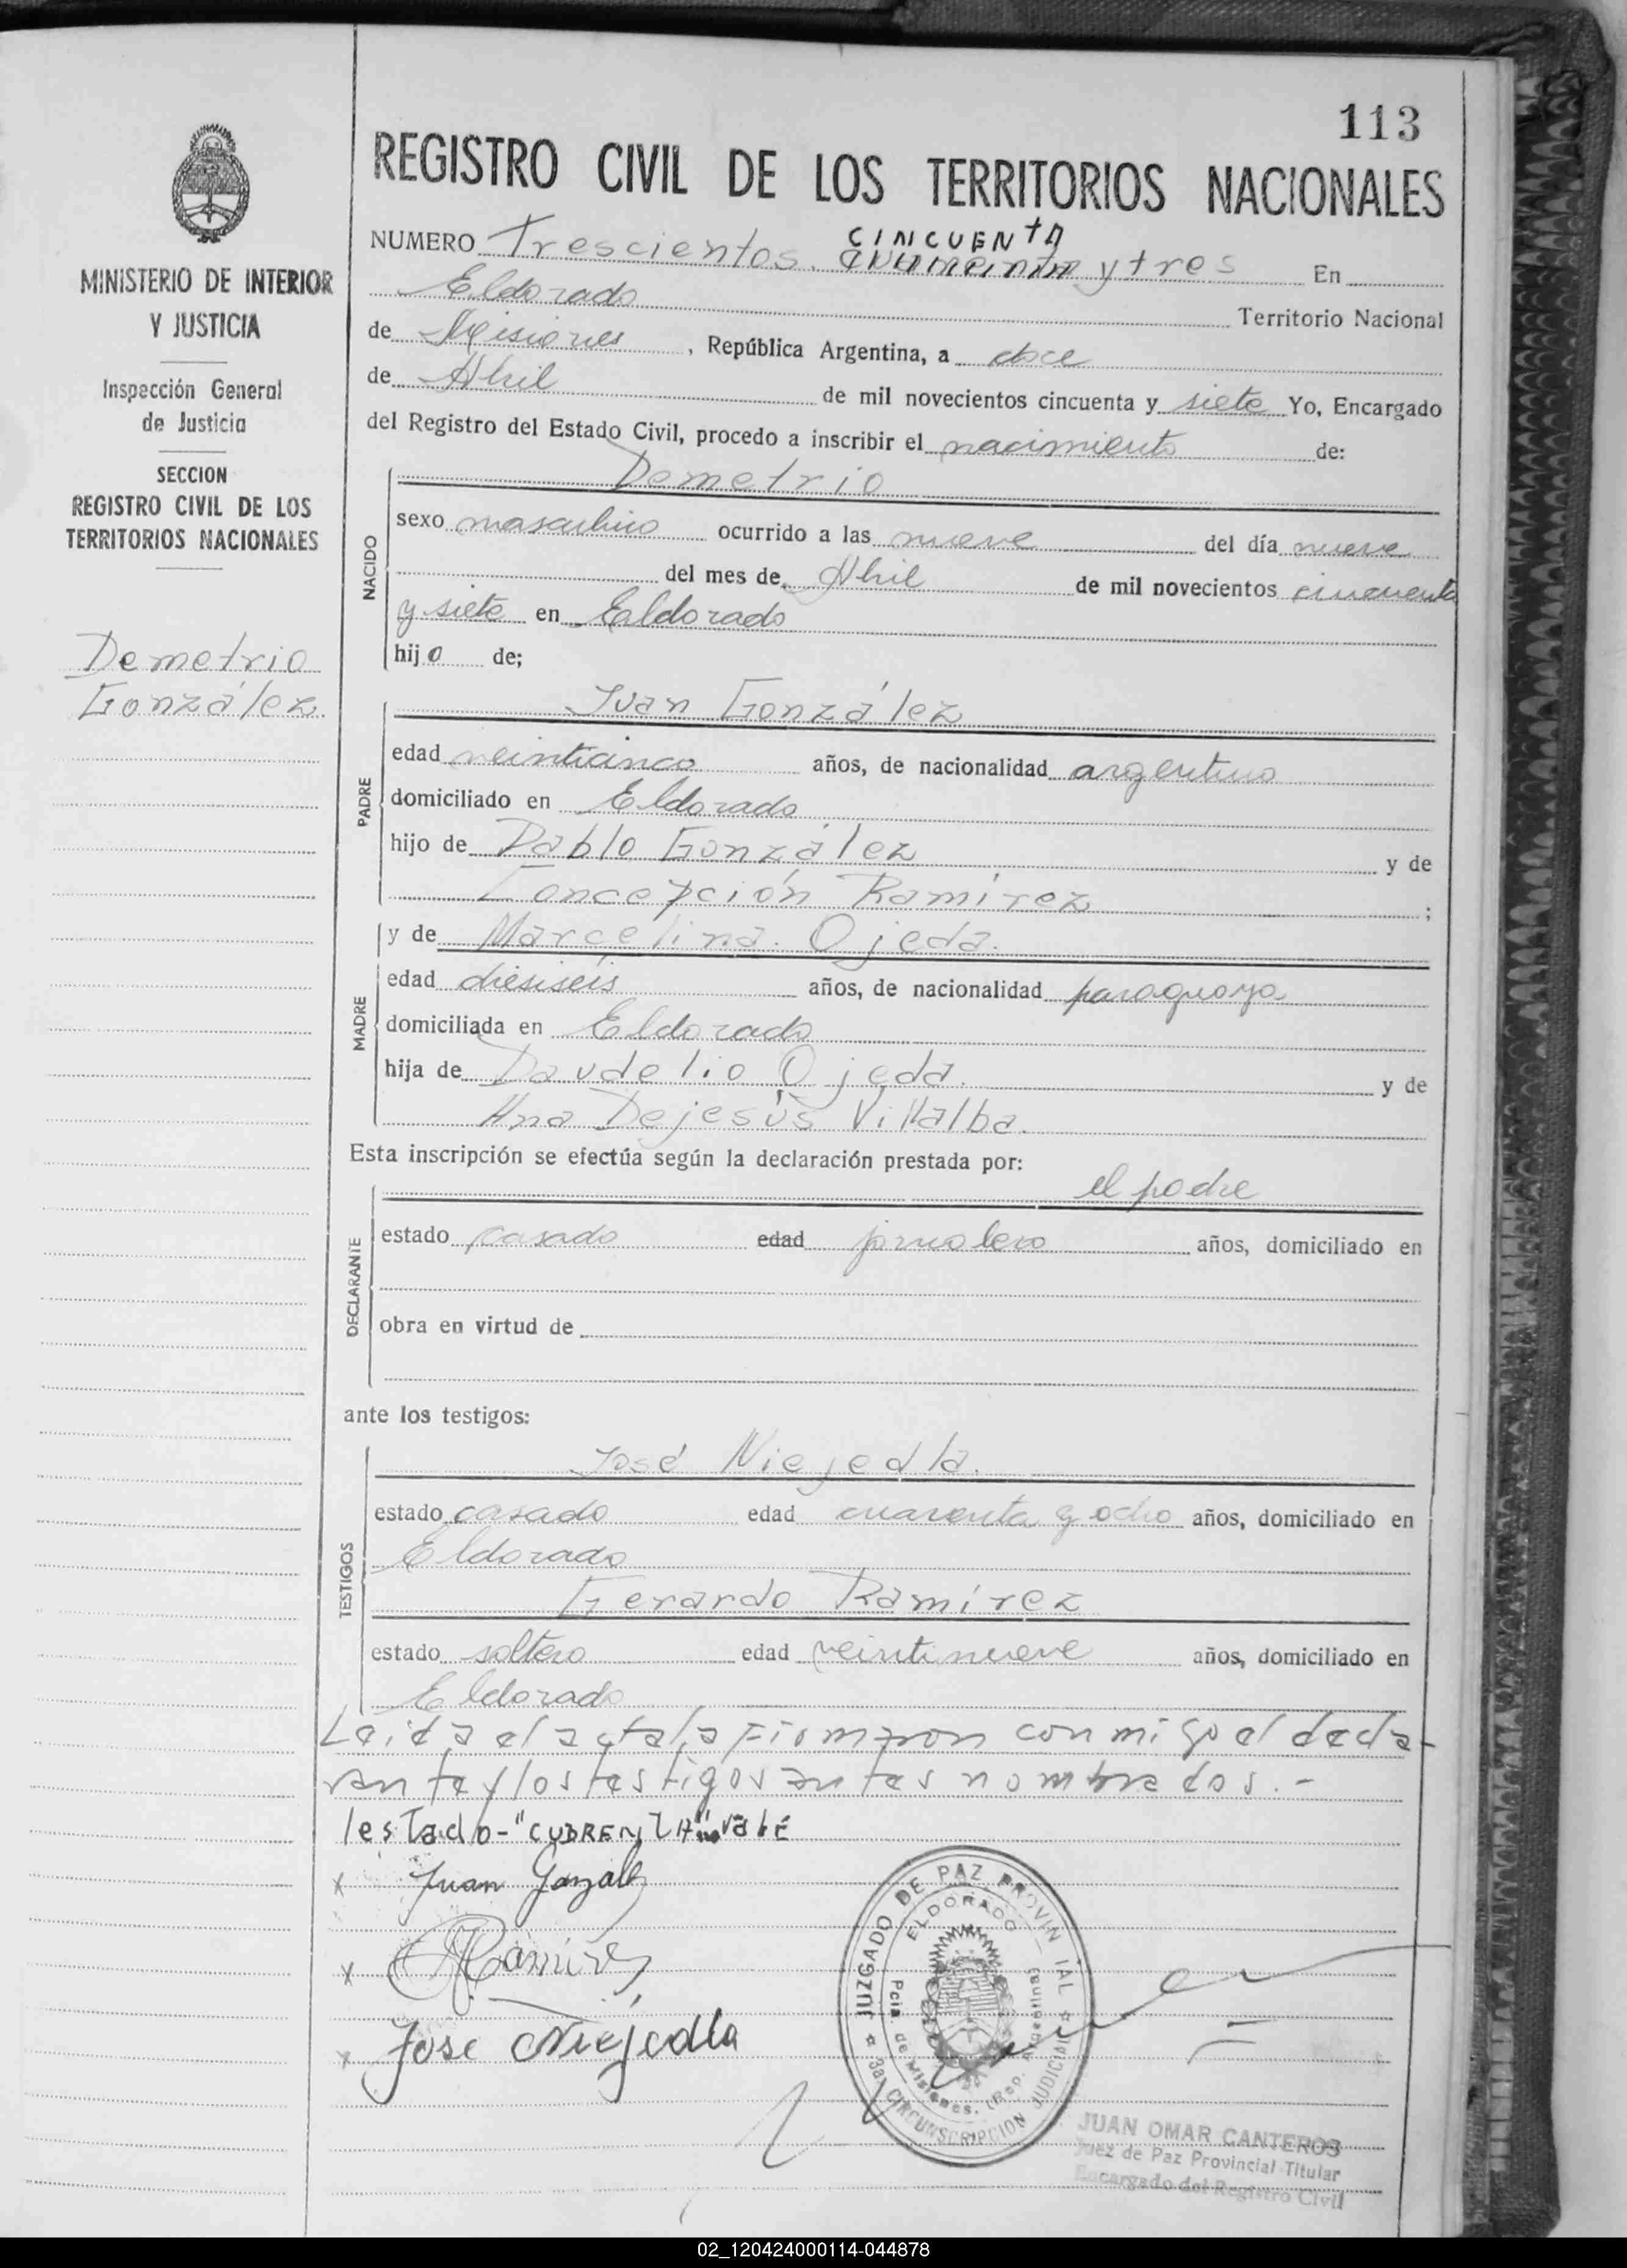 113
REGISTRO CIVIL DE LOS TERRITORIOS NACIONALES
MINISTERIO DE INTERIOR
Y JUSTICIA
Inspección General
de Justicia
SECCION
REGISTRO CIVIL DE LOS
TERRITORIOS NACIONALES
Demetrio
González
CINCUENTA
NUMERO Trescientos y tres En
Eldorado Territorio Nacional
de Misiones, República Argentina, a doce
de Abril de mil novecientos cincuenta y siete Yo, Encargado
del Registro del Estado Civil, procedo a inscribir el nacimiento de:
NACIDO
Demetrio
sexo masculino ocurrido a las nueve del día nueve
del mes de Abril de mil novecientos cincuenta
y siete en Eldorado
hijo de;
PADRE
Juan González
edad veinticinco años, de nacionalidad argentino
domiciliado en Eldorado
hijo de Pablo González y de
Concepción Ramírez ;
MADRE
y de Marcelina Ojeda.
edad diesiseis años, de nacionalidad paraguaya
domiciliada en Eldorado
hija de Daudelio Ojeda. y de
Ana Dejesús Villalba.
Esta inscripción se efectúa según la declaración prestada por:
DECLARANTE
el padre
estado casado edad jornalero años, domiciliado en
obra en virtud de
ante los testigos:
TESTIGOS
José Niejedla.
estado casado edad cuarenta y ocho años, domiciliado en
Eldorado
Gerardo Ramírez
estado soltero edad veintinueve años, domiciliado en
Eldorado
Leida el acta la firmaron conmigo el decla-
rante y los testigos antes nombrados.-
testado-"CUARENTA" no vale
x Juan Gonzalez
x Ramirez
x Jose Niejedlla
JUZGADO DE PAZ PROVINCIAL
ELDORADO
Pcia. de Misiones. (Rep. Argentina)
3a. CIRCUNSCRIPCION JUDICIAL
JUAN OMAR CANTEROS
Juez de Paz Provincial Titular
Encargado del Registro Civil
02_120424000114-044878